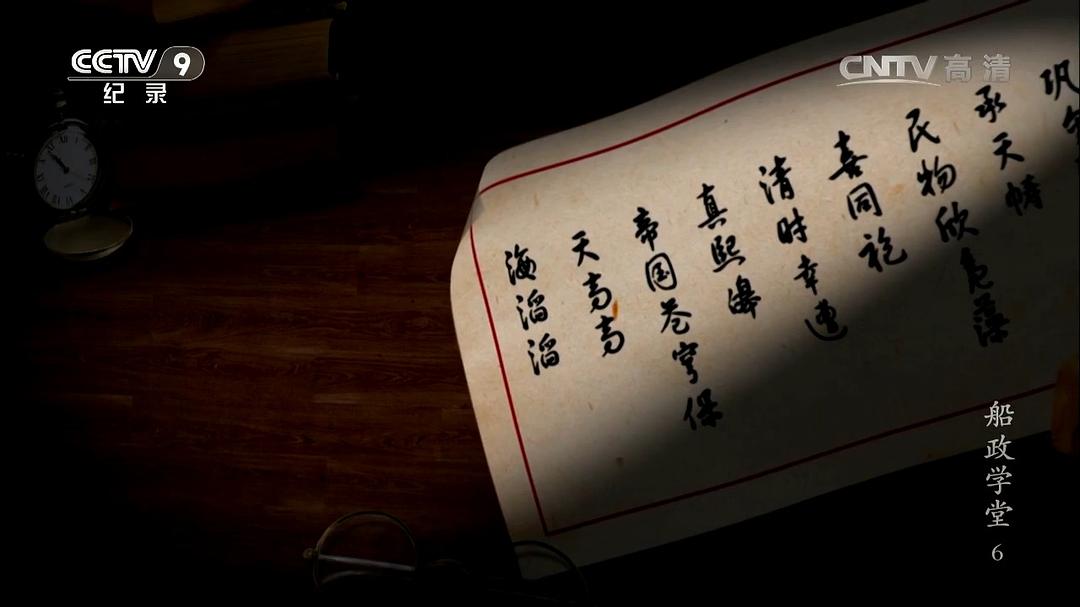 CCTV 9
纪录
CNTV高清
巩
承天帱
民物欣凫藻
喜同袍
清时幸遭
真熙皞
帝国苍穹保
天高高
海滔滔
船政学堂 6